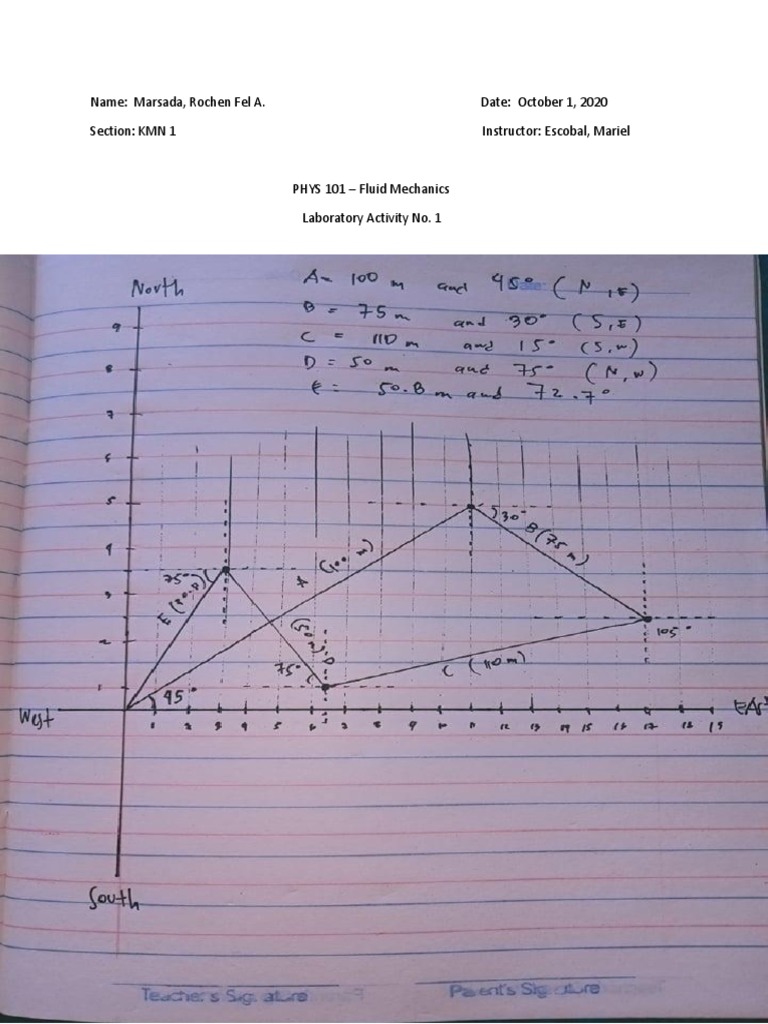 Name: Marsada, Rochen Fel A. Date: October 1, 2020
Section: KMN 1 Instructor: Escobal, Mariel
PHYS 101 – Fluid Mechanics
Laboratory Activity No. 1
North
A= 100 m and 45° (N, E)
B = 75 m and 30° (S, E)
C = 110 m and 15° (S, W)
D = 50 m and 75° (N, W)
E = 50.8 m and 72.7°
9
8
7
6
5
30° B (75 m)
4
A (100 m)
75°
3
2
(50 m) D
105°
75°
C (110 m)
1
45°
West
1 2 3 4 5 6 7 8 9 10 11 12 13 14 15 16 17 18 19
South
Teacher's Signature Parent's Signature